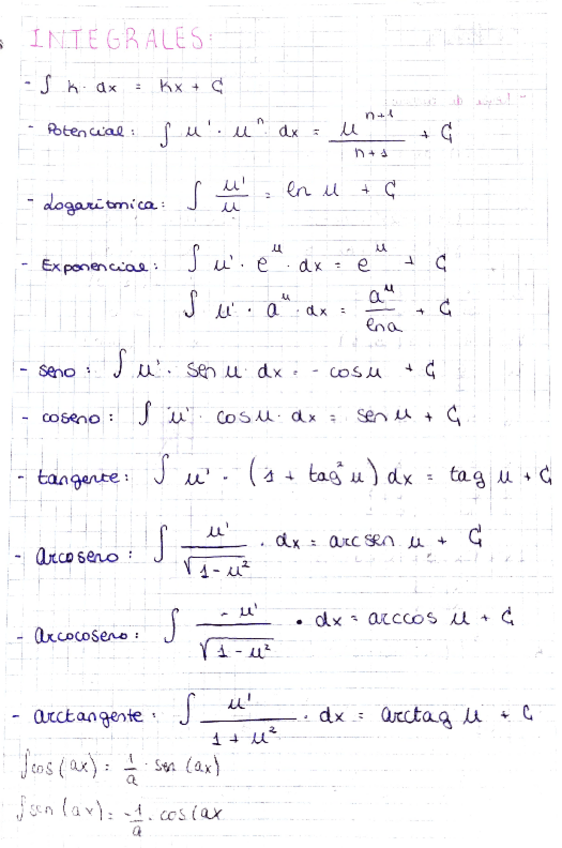 INTEGRALES:
- ∫ k · dx = kx + C
- Potencial: ∫ u' · uⁿ dx = uⁿ⁺¹/(n+1) + C
- Logaritmica: ∫ u'/u = ln u + C
- Exponencial: ∫ u' · eᵘ · dx = eᵘ + C
∫ u' · aᵘ · dx = aᵘ/ln a + C
- seno: ∫ u' · sen u · dx = - cos u + C
- coseno: ∫ u' · cos u · dx = sen u + C
- tangente: ∫ u' · (1 + tag² u) dx = tag u + C
- arcoseno: ∫ u'/√(1-u²) · dx = arcsen u + C
- arcocoseno: ∫ -u'/√(1-u²) · dx = arccos u + C
- arctangente: ∫ u'/(1+u²) · dx = arctag u + C
∫cos(ax) = 1/a · sen (ax)
∫sen (ax) = -1/a · cos(ax